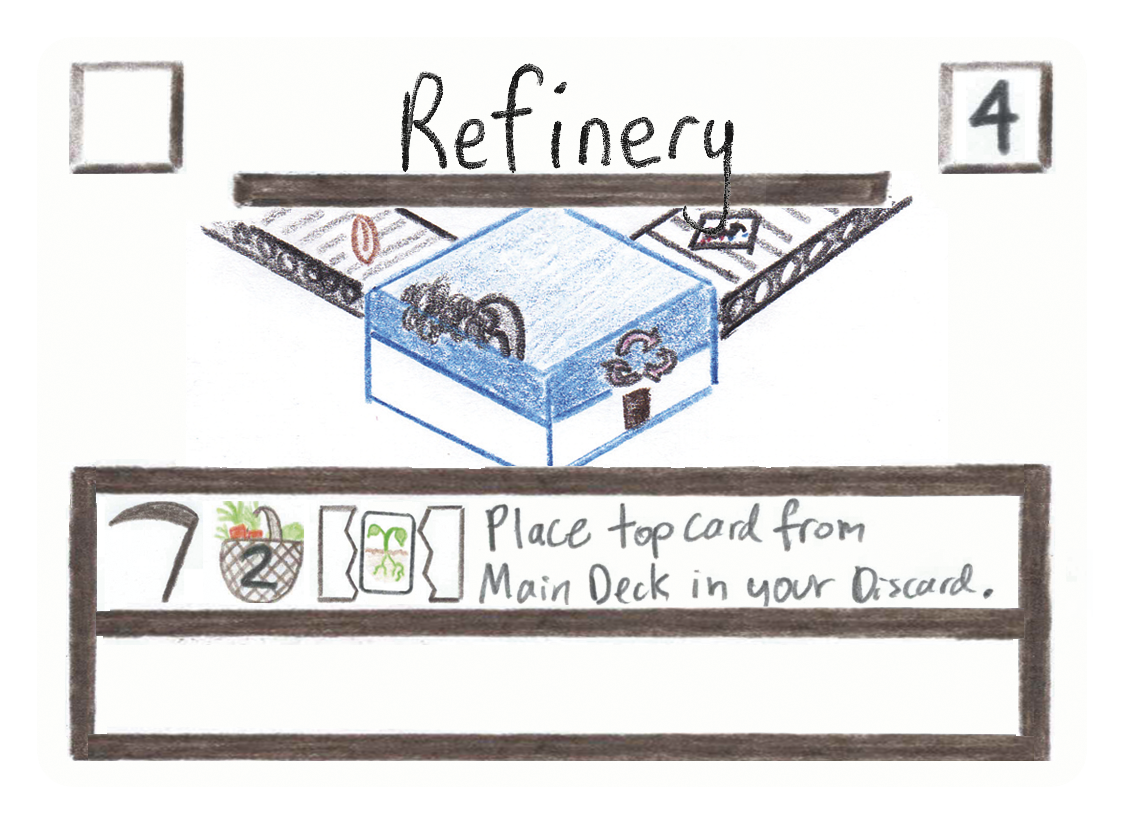 Refinery
4
2
Place top card from
Main Deck in your Discard.